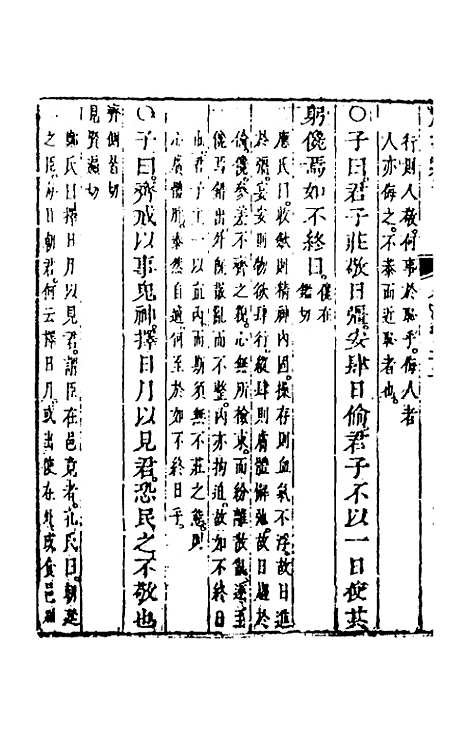 行則人敬何事於恥乎侮人者
人亦侮之不恭而近恥者也
○子曰君子莊敬日彊安肆日偷君子不以一日使其
躬儳焉如不終日儳在
鑑切
應氏曰收斂則精神內固操存則血氣不浮故日進
於彊安則物欲肆行縱肆則膚體懈弛故日趨於
儳參差不齊之貌心無所檢束而紛
儳焉錯出外既散亂而不整內亦拘迫故如不終日
也君子主一以直內而斯須無不莊之
心廣體胖泰然自適何至於如不終日乎
○子曰齊戒以事鬼神擇日月以見君恐民之不敬也
齊側皆切
見賢遍切
鄭氏曰擇日月以見君謂臣在邑竟者孔氏曰朝廷
之臣每日朝君何云擇日月或出使在外或食邑別